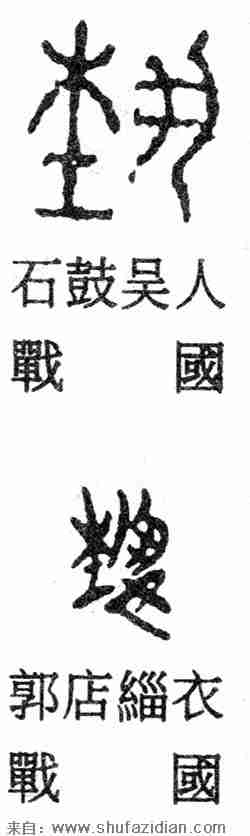 埶
石鼓吴人
戰國
埶
郭店緇衣
戰國
来自：www.shufazidian.com